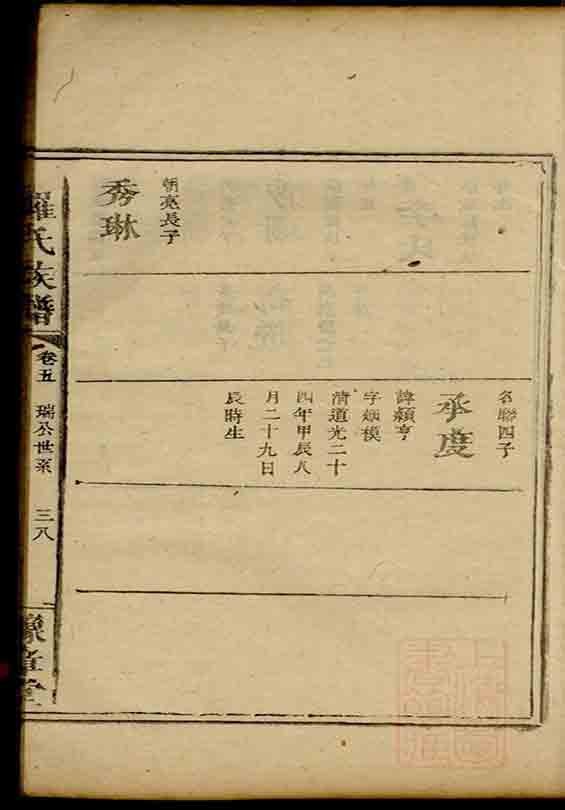 名聯四子
承度
諱穎亨
字煩模
清道光二十
四年甲辰八
月二十九日
辰時生
朝亮長子
秀琳
羅氏族譜
卷五
瑞公世系
三八
豫章堂